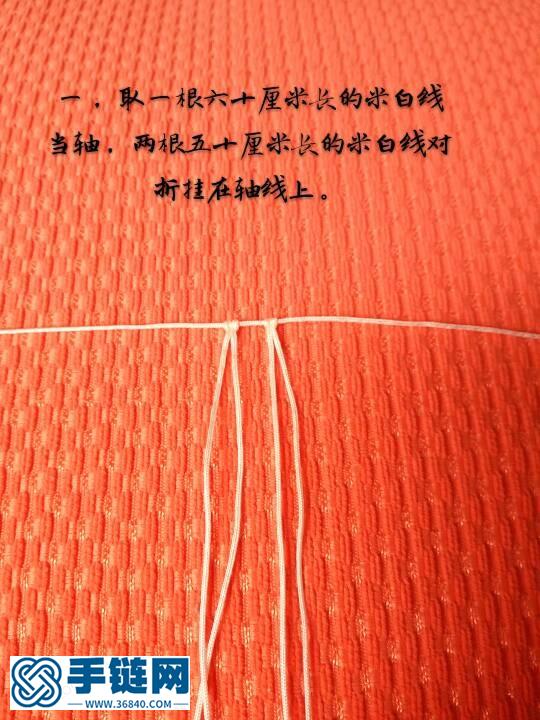 一，取一根六十厘米长的米白线
当轴，两根五十厘米长的米白线对
折挂在轴线上。
手链网
WWW.36840.COM